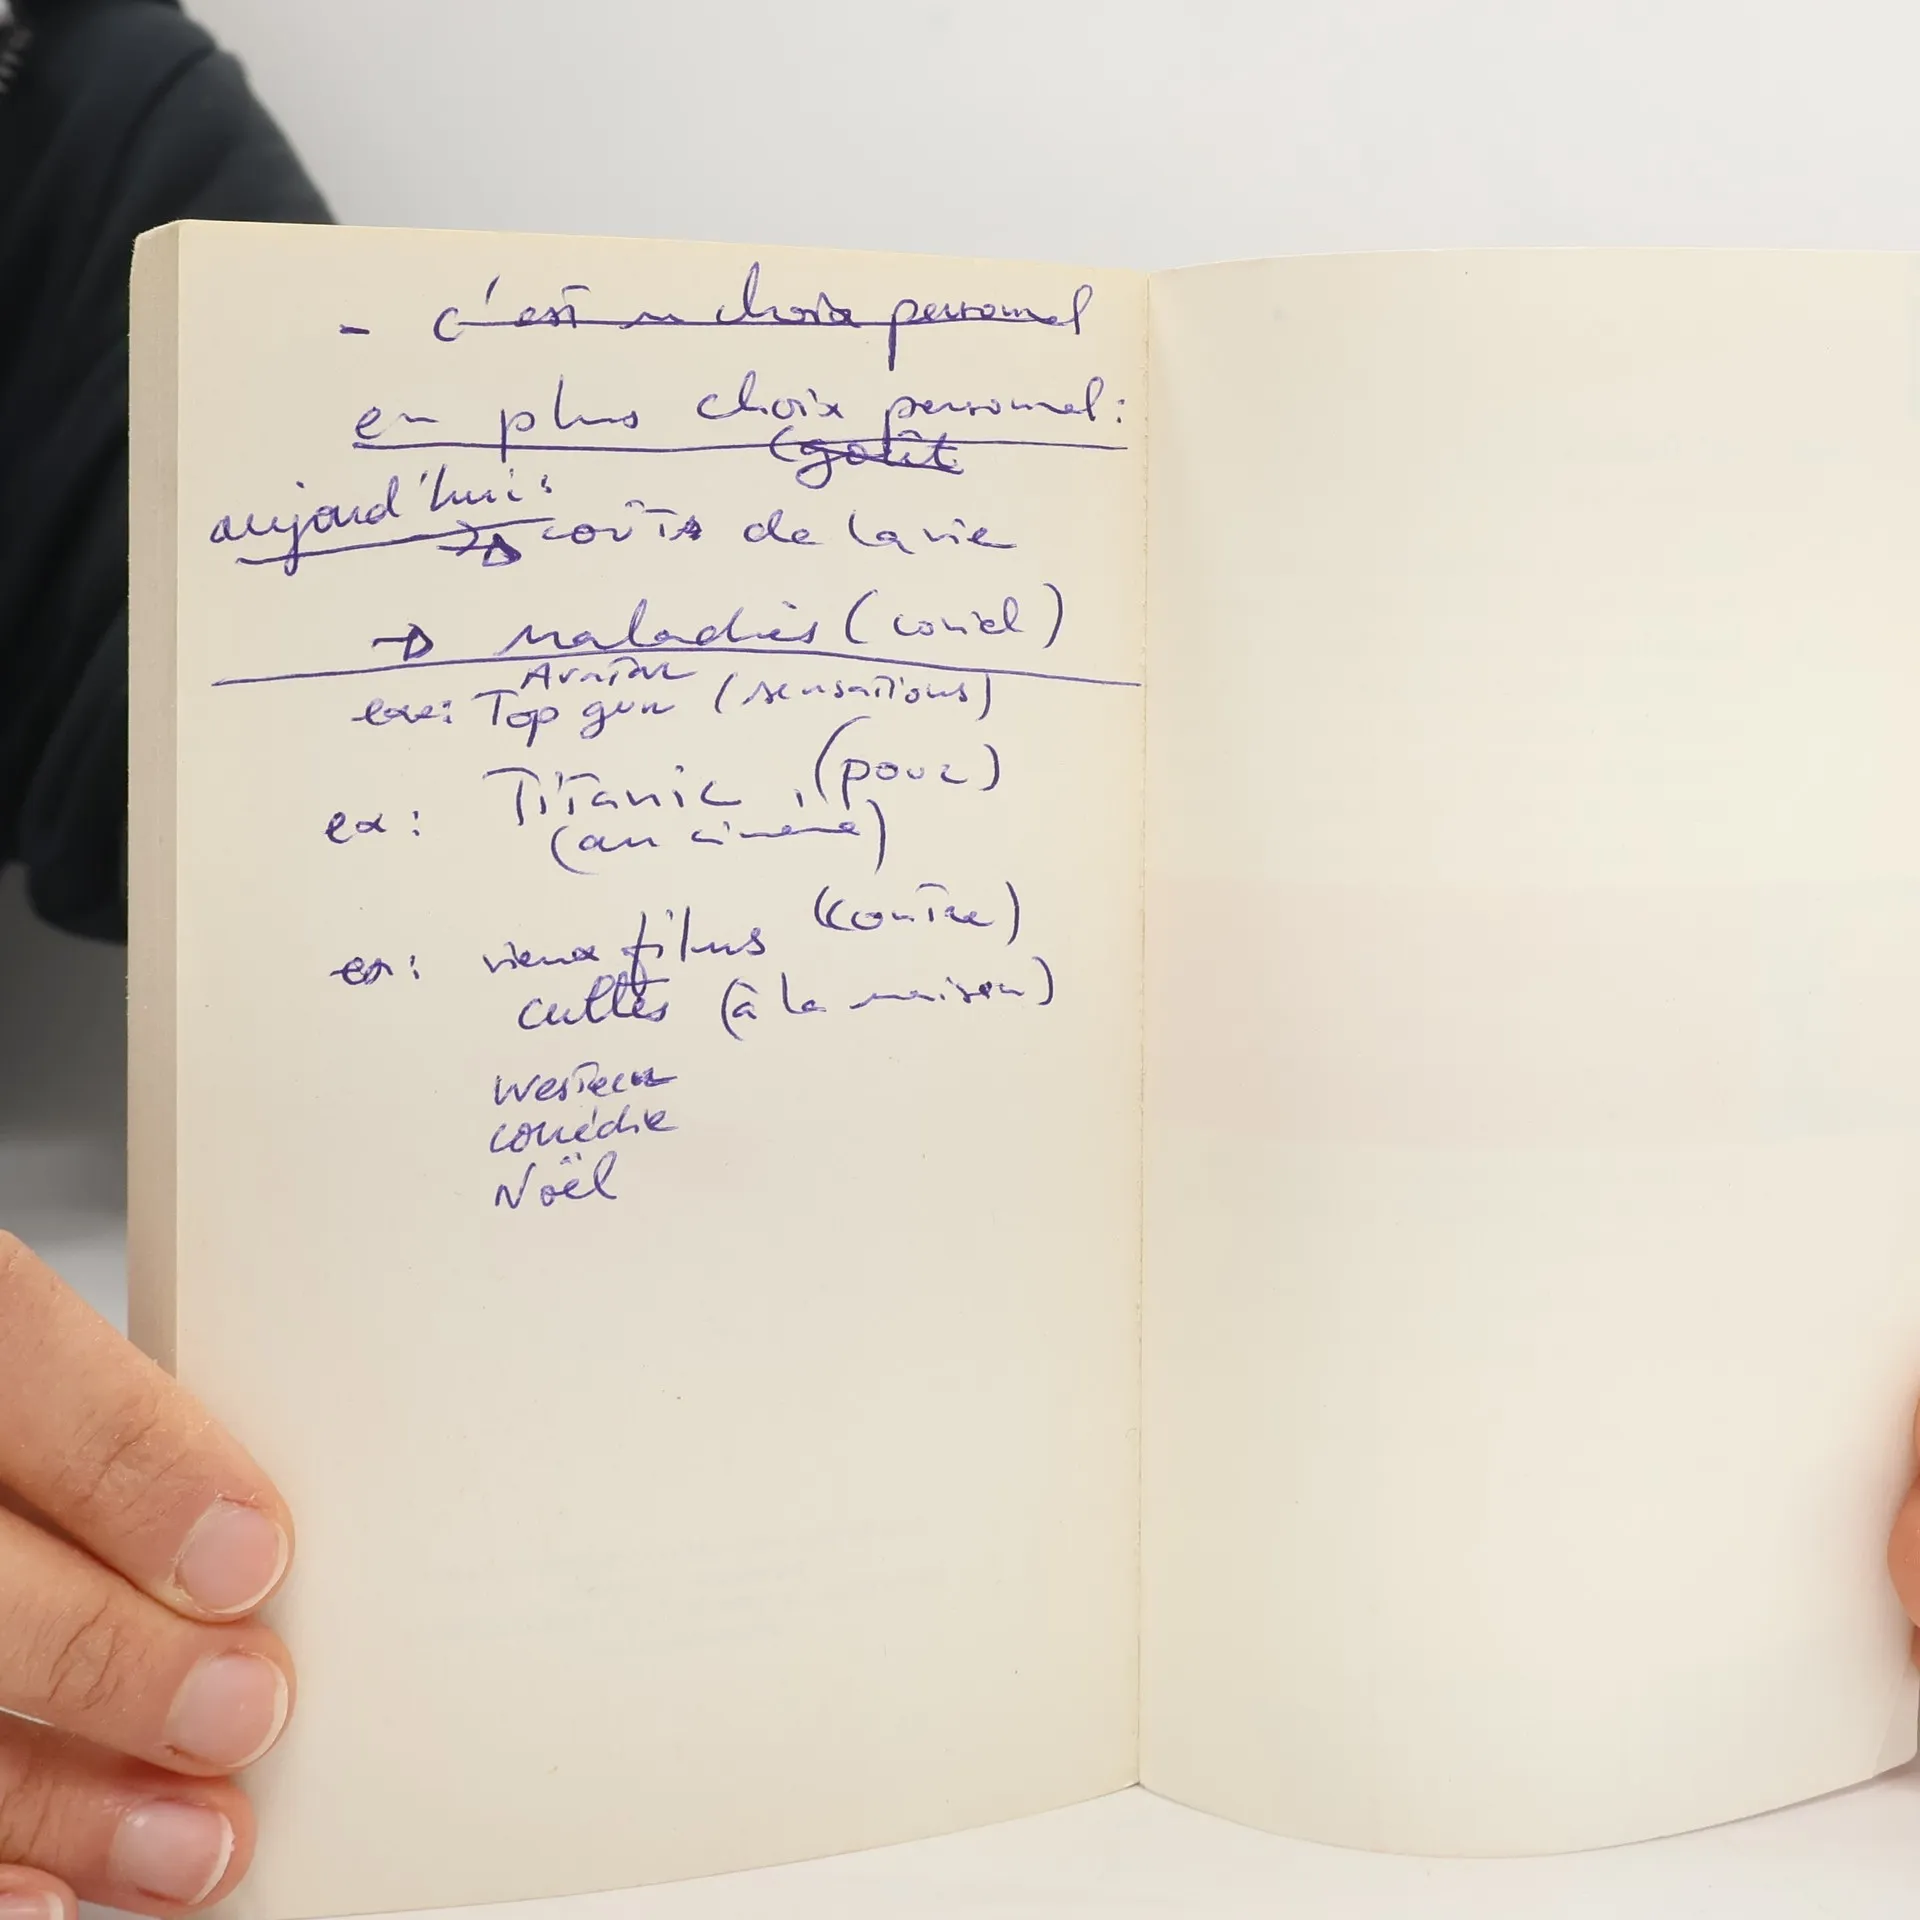 - c'est un choix personnel
en plus choix personnel:
(goût
aujourd'hui:
→ coûts de la vie
→ maladies (covid)
Avatar
ex: Top gun (sensations)
ex: Titanic, (pour)
(au cinéma)
ex: vieux films (contre)
cultes (à la maison)
Western
comédie
Noël